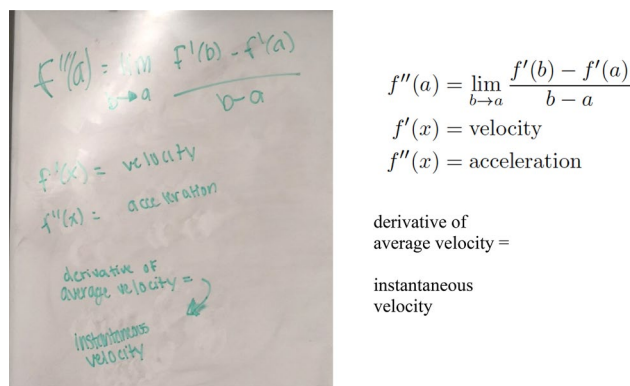 f''(a) = lim f'(b) - f'(a)
b→a b-a
f'(x) = velocity
f''(x) = acceleration
derivative of
average velocity =
instantaneous
velocity
f''(a) = lim f'(b) − f'(a)
b→a b − a
f'(x) = velocity
f''(x) = acceleration
derivative of
average velocity =
instantaneous
velocity